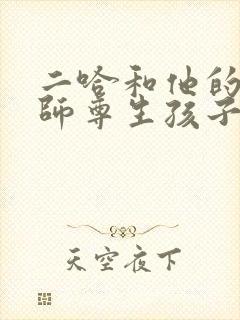 二哈和他的
師尊生孩子
天空夜下